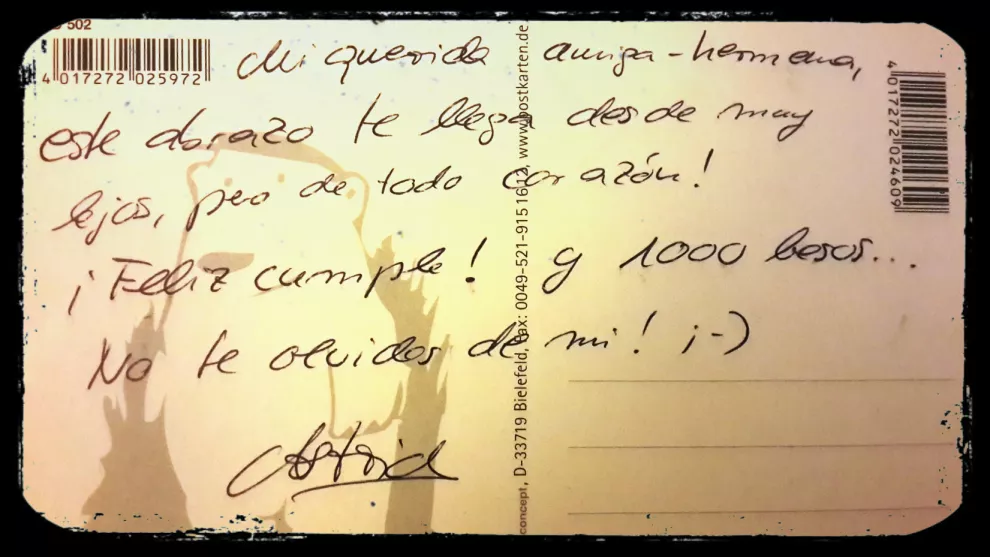 502
4 017272 025972
Mi querida amiga-hermana,
este abrazo te llega desde muy
lejos, pero de todo corazón!
¡Feliz cumple! y 1000 besos...
No te olvides de mi! ;-)
Astrid
concept, D-33719 Bielefeld, Fax: 0049-521-915 1612, www.postkarten.de
4 017272 024609